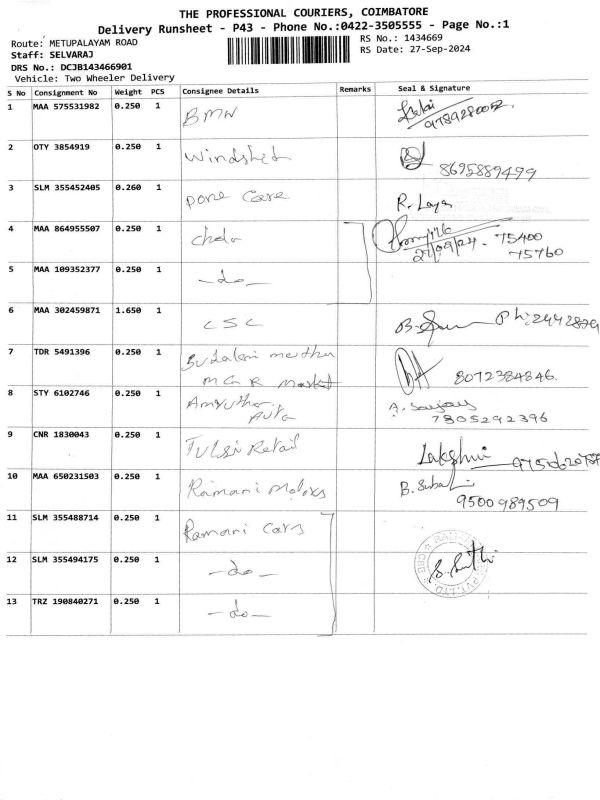 THE PROFESSIONAL COURIERS, COIMBATORE
Delivery Runsheet - P43 - Phone No.:0422-3505555 - Page No.:1
Route: METUPALAYAM ROAD
RS No.: 1434669
Staff: SELVARAJ
RS Date: 27-Sep-2024
DRS No.: DCJB143466901
Vehicle: Two Wheeler Delivery
S No Consignment No Weight PCS Consignee Details Remarks Seal & Signature
1 MAA 575531982 0.250 1 BMW
2 OTY 3854919 0.250 1 Windshield 8695889499
3 SLM 355452405 0.260 1 pore Care R. Laya
4 MAA 864955507 0.250 1 27/09/24. 75400
75760
5 MAA 109352377 0.250 1 -do-
6 MAA 302459871 1.650 1 CSC Ph: 2442879
7 TDR 5491396 0.250 1
M G R Market 8072384846.
8 STY 6102746 0.250 1 Amrutha A. Sanjay
Auto 7805292396
9 CNR 1830043 0.250 1 Tulsi Retail Lakshmi
10 MAA 650231503 0.250 1 Ramani Motors
9500989509
11 SLM 355488714 0.250 1 Ramani Cars
12 SLM 355494175 0.250 1 -do-
13 TRZ 190840271 0.250 1 -do-